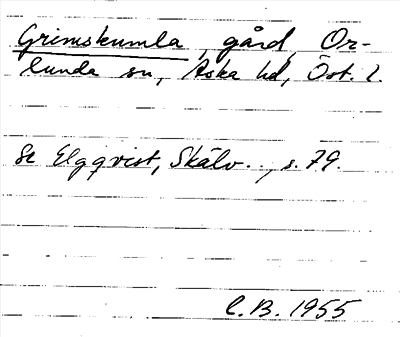 Grimskumla, gård, Or-
lunda sn, Aska hd, Öst. l.
Se Elgqvist, Skälv.., s. 79.
C.B. 1955